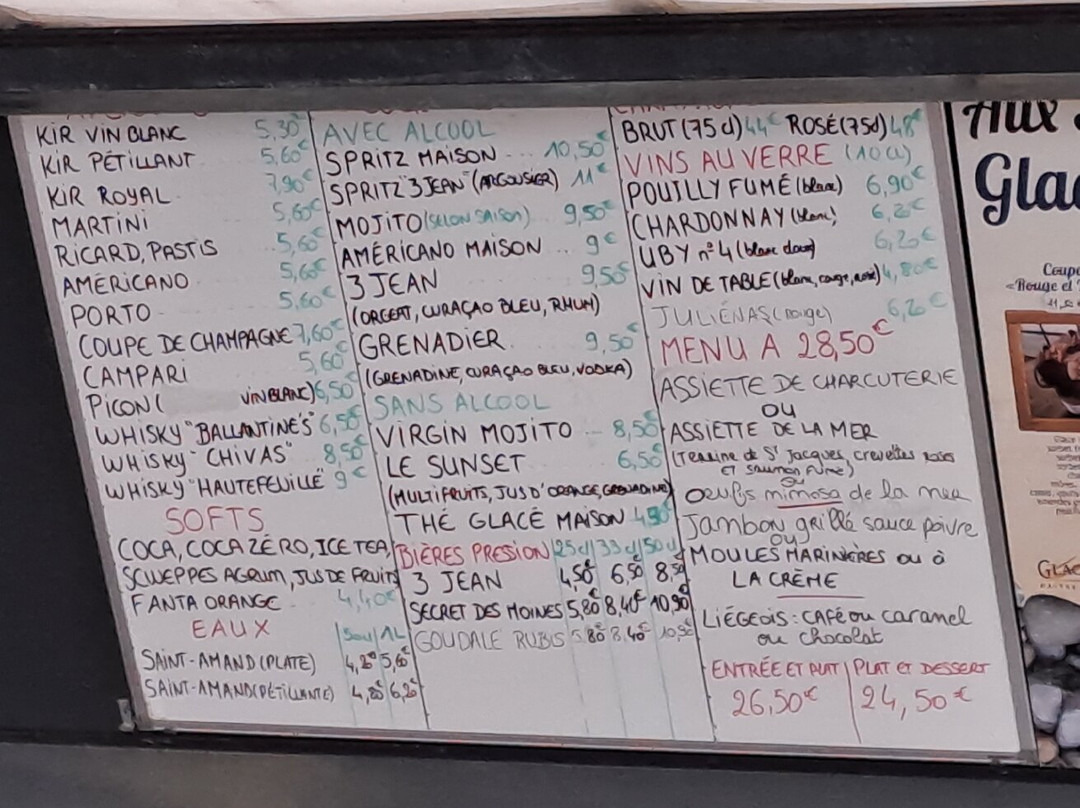 KIR VIN BLANC 5,30€
KIR PÉTILLANT 5,60€
KIR ROYAL 7,90€
MARTINI 5,60€
RICARD, PASTIS 5,60€
AMÉRICANO 5,60€
PORTO 5,60€
COUPE DE CHAMPAGNE 7,60€
CAMPARI 5,60€
PICON ( VIN BLANC) 6,50€
WHISKY "BALLANTINE'S" 6,50€
WHISKY "CHIVAS" 8,50€
WHISKY "HAUTEFEUILLE" 9€
SOFTS
COCA, COCA ZÉRO, ICE TEA,
SCWEPPES AGRUM, JUS DE FRUITS
FANTA ORANGE 4,40€
EAUX 50cl 1L
SAINT-AMAND (PLATE) 4,20€ 5,60€
SAINT-AMAND (PÉTILLANTE) 4,80€ 6,20€
AVEC ALCOOL
SPRITZ MAISON 10,50€
SPRITZ "3 JEAN" (ARGOUSIER) 11€
MOJITO (SELON SAISON) 9,50€
AMÉRICANO MAISON 9€
3 JEAN 9,50€
(ORGEAT, CURAÇAO BLEU, RHUM)
GRENADIER 9,50€
(GRENADINE, CURAÇAO BLEU, VODKA)
SANS ALCOOL
VIRGIN MOJITO 8,50€
LE SUNSET 6,50€
(MULTIFRUITS, JUS D'ORANGE, GRENADINE)
THÉ GLACÉ MAISON 4,90€
BIÈRES PRESSION 25cl 33cl 50cl
3 JEAN 4,50€ 6,50€ 8,50€
SECRET DES MOINES 5,80€ 8,40€ 10,90€
GOUDALE RUBIS 5,80€ 8,40€ 10,90€
BRUT (75cl) 44€ ROSÉ (75cl) 48€
VINS AU VERRE (10cl)
POUILLY FUMÉ (blanc) 6,90€
CHARDONNAY (blanc) 6,20€
UBY n°4 (blanc doux) 6,20€
VIN DE TABLE (blanc, rouge, rosé) 4,80€
JULIÉNAS (rouge) 6,20€
MENU A 28,50€
ASSIETTE DE CHARCUTERIE
OU
ASSIETTE DE LA MER
(Terrine de St Jacques, crevettes roses
ET saumon fumé)
ou
oeufs mimosa de la mer
Jambon grillé sauce poivre
ou
MOULES MARINIÈRES ou à
LA CRÈME
LIÉGEOIS : CAFÉ ou caramel
ou chocolat
ENTRÉE ET PLAT PLAT ET DESSERT
26,50€ 24,50€
Aux
Gla
Coupe
«Rouge et
GLAC